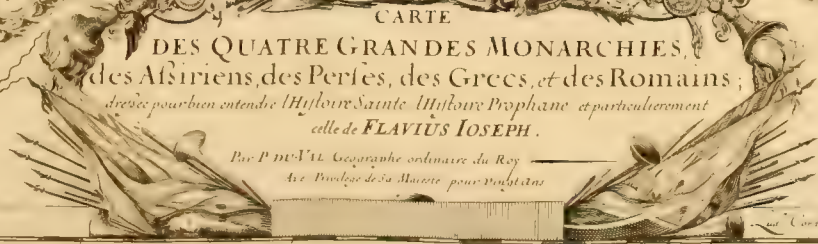 CARTE
DES QUATRE GRANDES MONARCHIES,
des Aßiriens, des Perſes, des Grecs, et des Romains ;
dreſsée pour bien entendre l'Hiſtoire Sainte l'Hiſtoire Prophane et particulierement
celle de FLAVIUS IOSEPH .
Par P. DU-VAL Geographe ordinaire du Roy
Avec Privilege de Sa Majesté pour vingt ans
Lud.